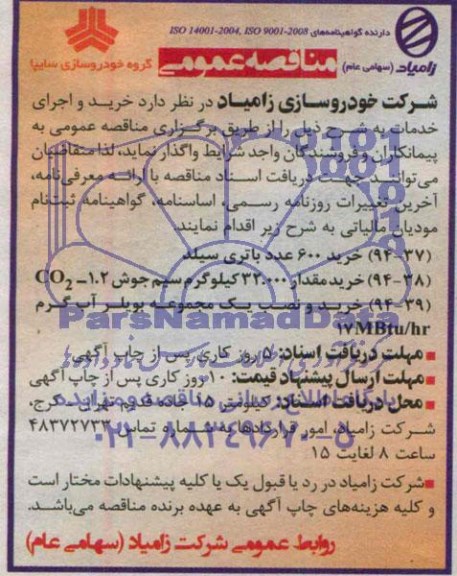 دارنده گواهینامه‌های ISO 14001-2004, ISO 9001-2008
زامیاد (سهامی عام)
مناقصه عمومی
گروه خودروسازی سایپا
شرکت خودروسازی زامیاد در نظر دارد خرید و اجرای
خدمات به شرح ذیل را از طریق برگزاری مناقصه عمومی به
پیمانکاران و فروشندگان واجد شرایط واگذار نماید، لذا متقاضیان
می‌توانند جهت دریافت اسناد مناقصه با ارائه معرفی‌نامه،
آخرین تغییرات روزنامه رسمی، اساسنامه، گواهینامه ثبت‌نام
مودیان مالیاتی به شرح زیر اقدام نمایند.
(۹۴-۳۷) خرید ۶۰۰ عدد باتری سیلد
(۹۴-۳۸) خرید مقدار ۳۲.۰۰۰ کیلوگرم سیم جوش ۱.۲ـ CO2
(۹۴-۳۹) خرید و نصب یک مجموعه بویلر آب گرم
۱۷MBtu/hr
ParsNamadData
■ مهلت دریافت اسناد: ۵ روز کاری پس از چاپ آگهی
■ مهلت ارسال پیشنهاد قیمت: ۱۰ روز کاری پس از چاپ آگهی
■ محل دریافت اسناد: کیلومتر ۱۵ جاده قدیم تهران - کرج،
شرکت زامیاد، امور قراردادها به شماره تماس ۴۸۳۷۲۷۳۳
۰۲۱-۸۸۳۴۹۶۷۰-۵
ساعت ۸ لغایت ۱۵
■ شرکت زامیاد در رد یا قبول یک یا کلیه پیشنهادات مختار است
و کلیه هزینه‌های چاپ آگهی به عهده برنده مناقصه می‌باشد.
روابط عمومی شرکت زامیاد (سهامی عام)